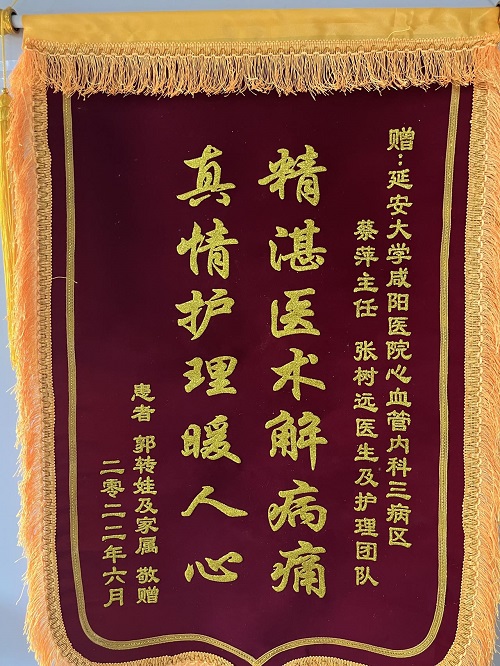 赠:延安大学咸阳医院心血管内科三病区
蔡萍主任 张树远医生及护理团队
精湛医术解病痛
真情护理暖人心
患者 郭转娃及家属 敬赠
二零二二年六月